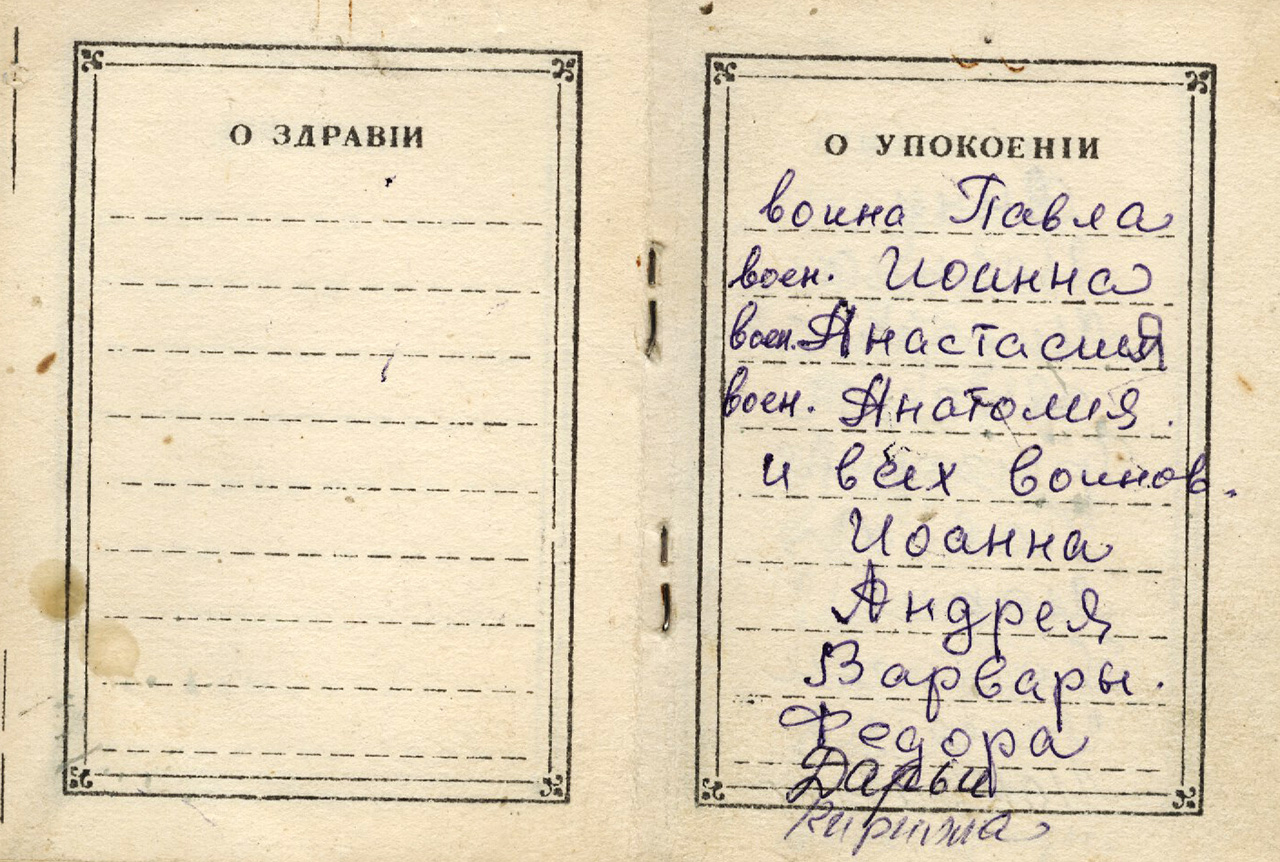 О ЗДРАВІИ
О УПОКОЕНІИ
воина Павла
воен. Иоанна
воен. Анастасия
воен. Анатолия.
и всех воинов.
Иоанна
Андрея
Варвары.
Федора
Дарьи
Кирилла